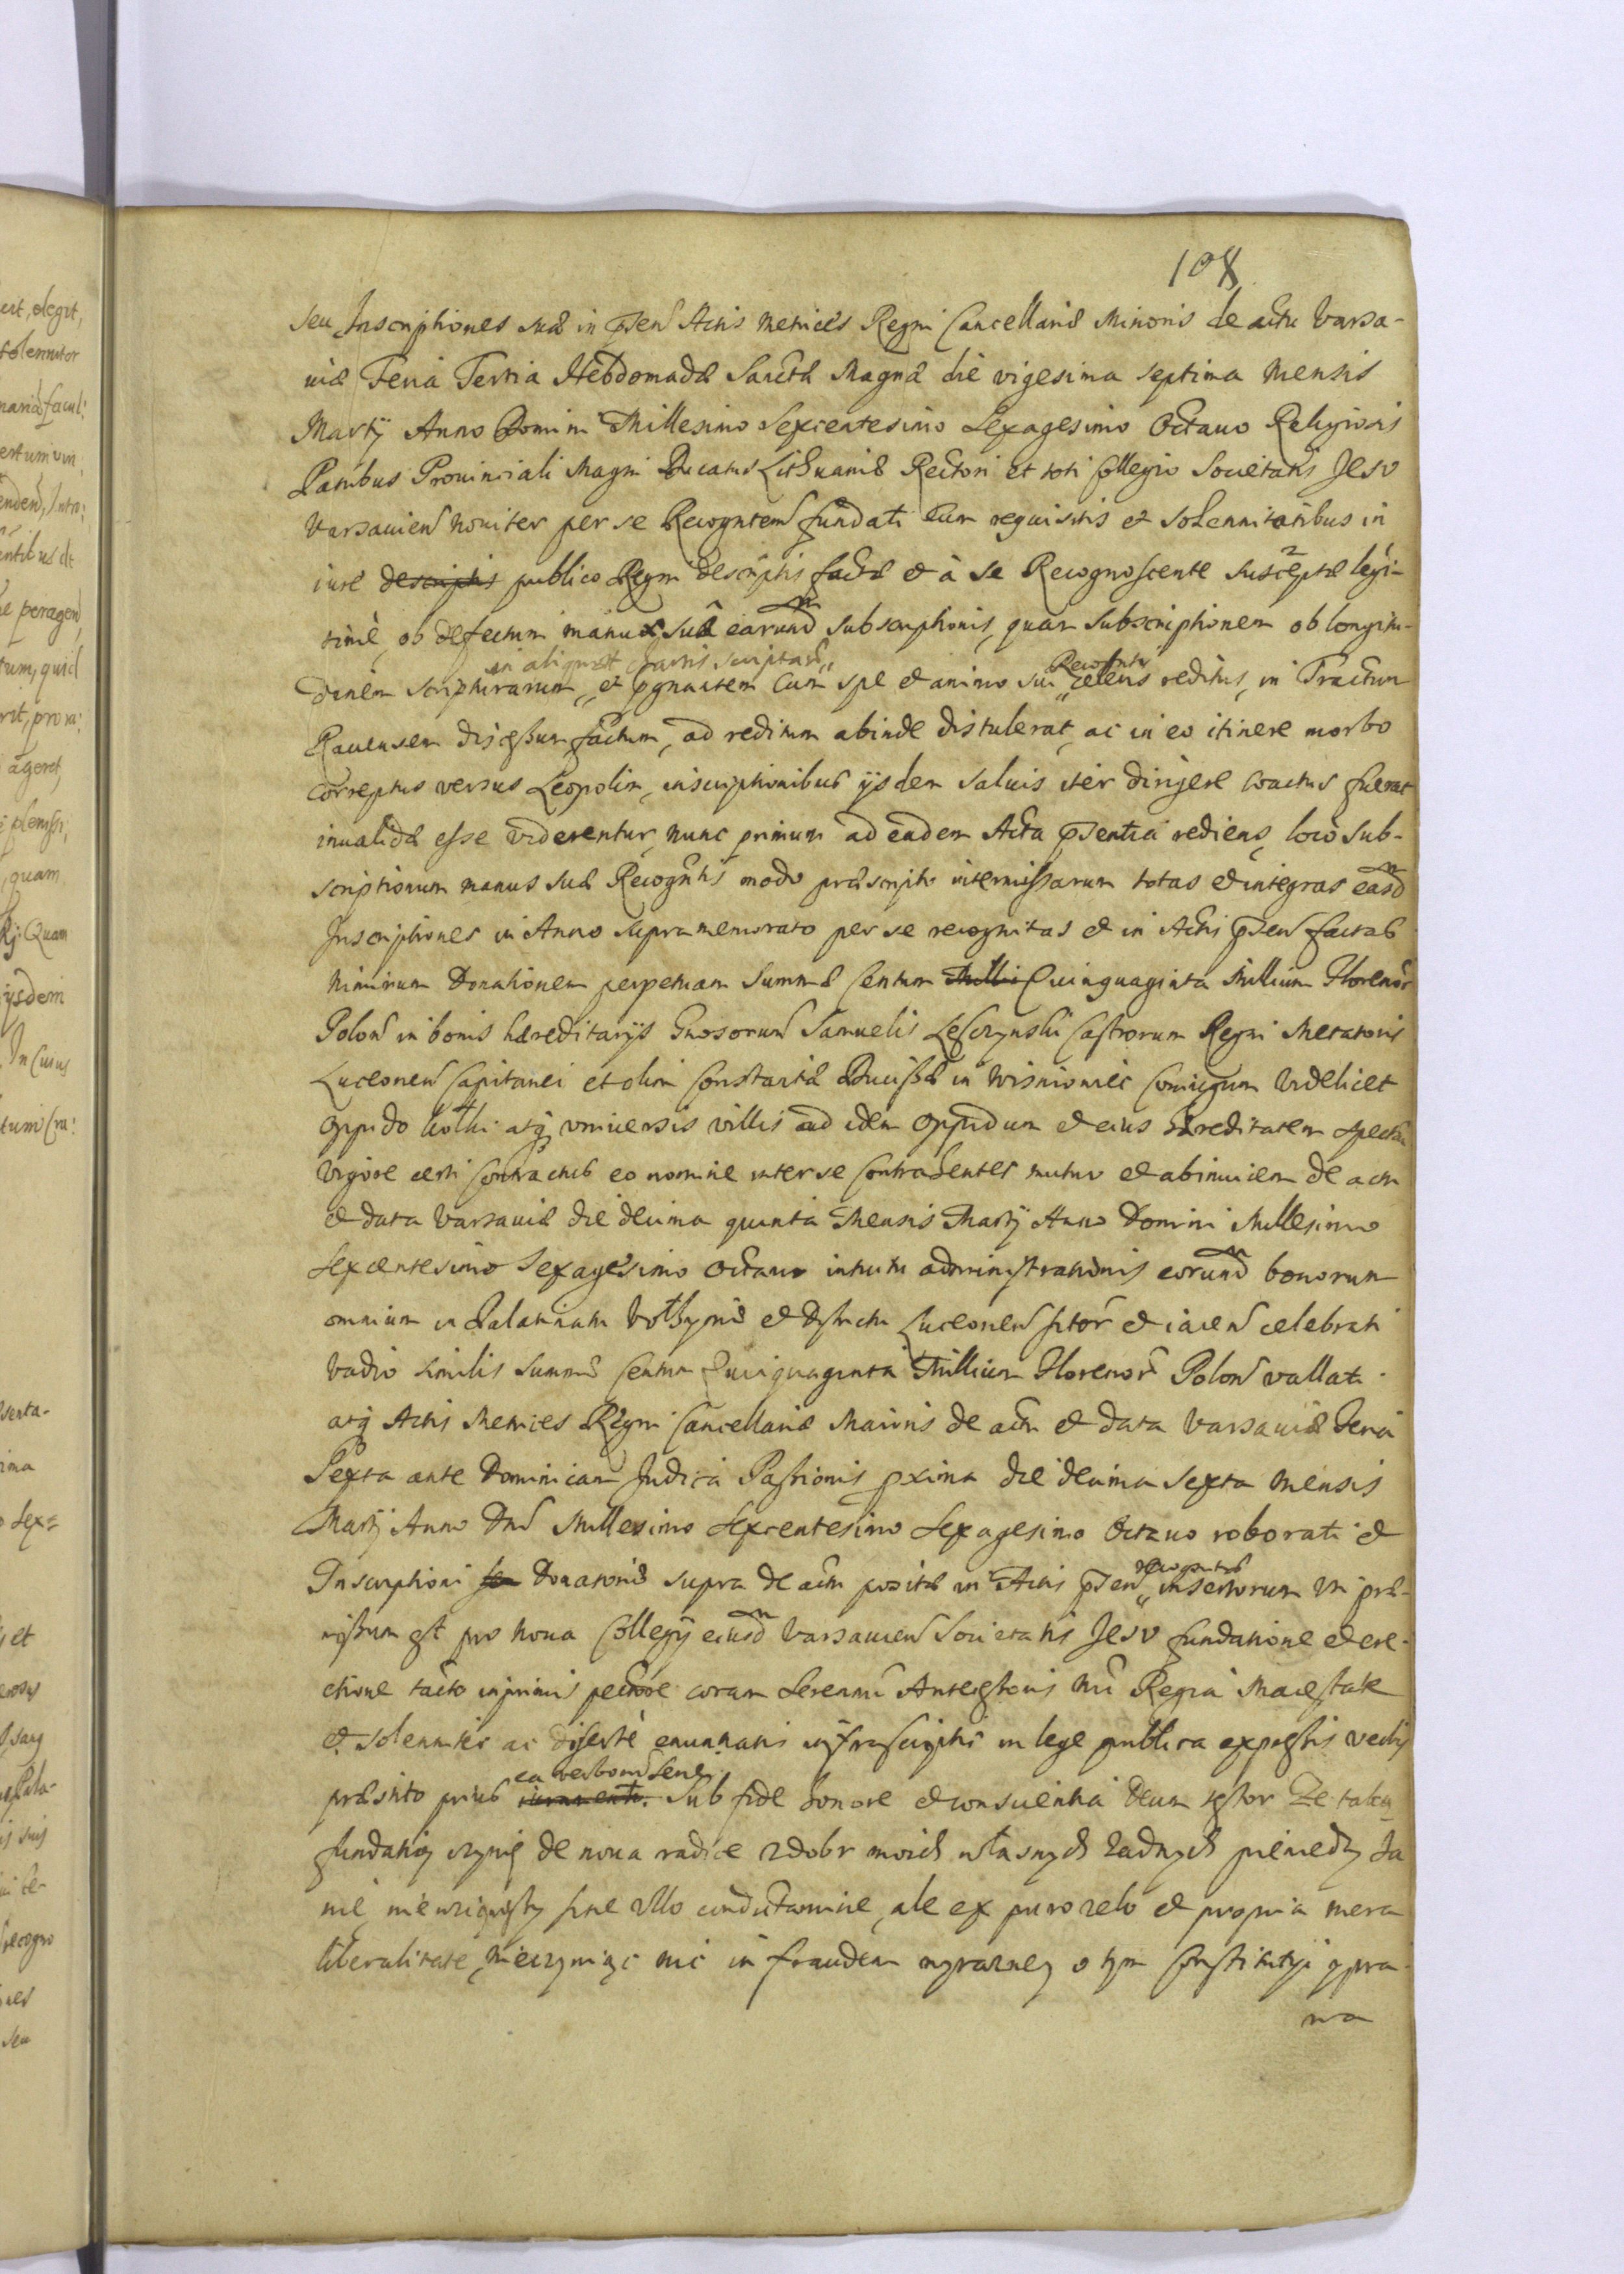 108
seu Inscriptiones suæ in pñten̄ Actis Metrices Regni Cancellariæ Minoris de actu Varsa-
uiæ Feria Tertia Hebdomadæ Sanctæ Magnæ die vigesima septima Mensis
Martij Anno Domini Millesimo Sexcentesimo Sexagesimo Octauo Religiosis
Patribus Prouinciali Magni Ducatus Lithuaniæ Rectori et toti Collegio Societatis Jesv
Varsauien̄ nouiter per se Recognten̄ fundati cum requisitis et solennitatibus in
iure descriptis publico Regni descriptis factæ et à se Recognoscente susceptæ legi-
timè, ob defectum manus suæ earund subscriptionis, quam subscriptionem ob longitu-
in aliquot chartis scriptar̄ Recogntis
dinem scripturarum, et pgnantem cum spe et animo sui celeris reditus, in Tractum
Rauensem discessum factum, ad reditum abinde distulerat, ac in eo itinere morbo
correptus versus Leopolim, inscriptionibus ijsdem saluis iter dirigere coactus fuerat
inualidæ esse viderentur, nunc primum ad eadem Acta pñtentia rediens, loco sub-
scriptionum manus suæ Recogntis modo præscripto intermissarum totas et integras easd
Inscriptiones in Anno supramemorato per se recognitas et in Actis pñten̄ factas
nimirum Donationem perpetuam Summæ Centum Milli Quinquaginta Millium Florenor̄
Polon̄ in bonis hæreditarijs Gnosorum Samuelis Leszczynski Castrorum Regni Metatoris
Luceonen̄ Capitanei et olim Constantiæ Ducissæ in Wisniowiec Coniugum videlicet
oppido atq vniuersis villis ad idem oppidum et eius hæreditatem spectan̄
vigore certi Contractus eo nomine inter se Contrahentes mutuo et abinuicem de actu
et data Varsauiæ die decima quinta Mensis Martij Anno Domini Millesimo
Sexcentesimo Sexagesimo Octauo intuitu administrationis eorund bonorum
omnium in Palatinatu Volhyniæ et Districtu Luceonen̄ sitor̄ et iacen̄ celebrati
vadio similis summæ Centum Quinquaginta Millium Florenor̄ Polon̄ vallati
atq Actis Metrices Regni Cancellariæ Maioris de actu et data Varsauiæ Feria
Sexta ante Dominicam Judica Passionis pxima die decima sexta Mensis
Martij Anno Dni Millesimo Sexcentesimo Sexagesimo Octauo roborati et
recognitæ
Inscriptioni seu Donationis supra de actu positæ in Actis pñten̄ insertorum vti præ-
missum est pro noua Collegij eiusd Varsauien̄ Societatis Jesv fundatione et ere-
ctione tacto inprimis pectore coram Serenmi Antecessoris nri Regia Maiestate
et solenniter ac disertè enuntiatis infrascriptis in lege publica expressis verbis
ea verborum serie
præstito prius iuramento. Sub fide honore et conscientia Deum testor Ze takų
fundatią czynię de noua radice z dobr moich własnych żadnych pieniedzy na
nię nie wziąwszy sine vllo conductamine, ale ex puro zelo et propria mera
liberalitate, nieczyniąc nic in fraudem wyrazney o tym Constitutyi y pra-
wa